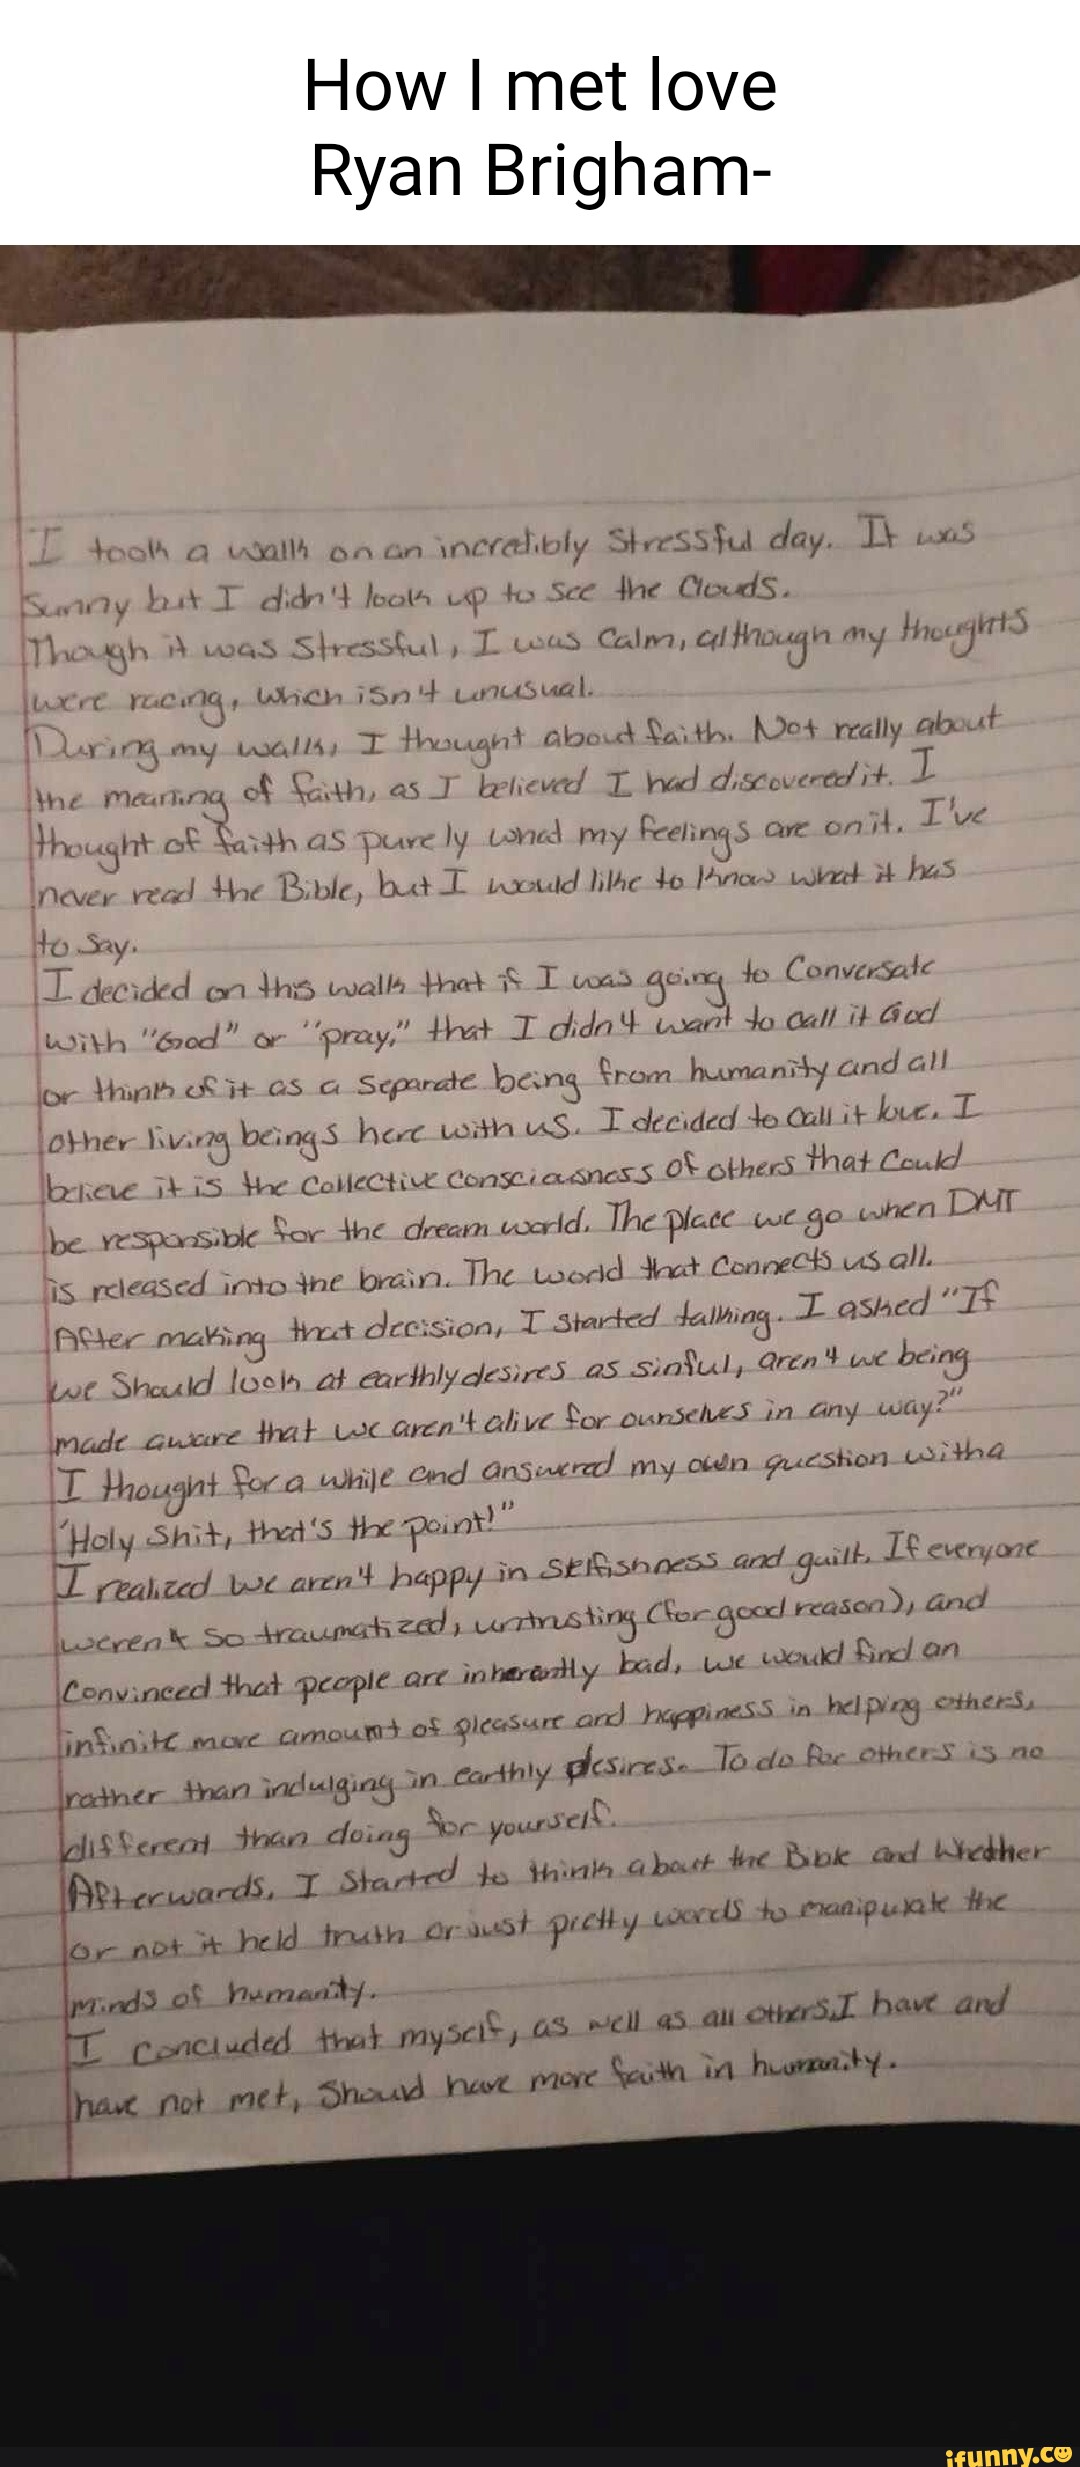 How I met love
Ryan Brigham-
I took a walk on an incredibly Stressful day. It was
Sunny but I didn't look up to see the Clouds.
Though it was Stressful, I was Calm, although my thoughts
were racing, which isn't unusual.
During my walk, I thought about faith. Not really about
the meaning of faith, as I believed I had discovered it. I
thought of faith as purely what my feelings are on it. I've
never read the Bible, but I would like to know what it has
to Say.
I decided on this walk that if I was going to Conversate
with "God" or "pray," that I didn't want to call it God
or think of it as a Separate being from humanity and all
other living beings here with us. I decided to Call it love. I
believe it is the Collective Consciousness of others that Could
be responsible for the dream world. The place we go when DMT
is released into the brain. The world that Connects us all.
After making that decision, I started talking. I asked "If
we Should look at earthly desires as sinful, aren't we being
made aware that we aren't alive for ourselves in any way?"
I thought for a while and answered my own question with a
"Holy Shit, that's the point!"
I realized we aren't happy in selfishness and guilt. If everyone
weren't so traumatized, untrusting (for good reason), and
Convinced that people are inherently bad, we would find an
infinite more amount of pleasure and happiness in helping others,
rather than indulging in earthly desires. To do for others is no
different than doing for yourself.
Afterwards, I Started to think about the Bible and Whether
or not it held truth or just pretty words to manipulate the
minds of humanity.
I Concluded that myself, as well as all others, I have and
have not met, Should have more faith in humanity.
ifunny.co